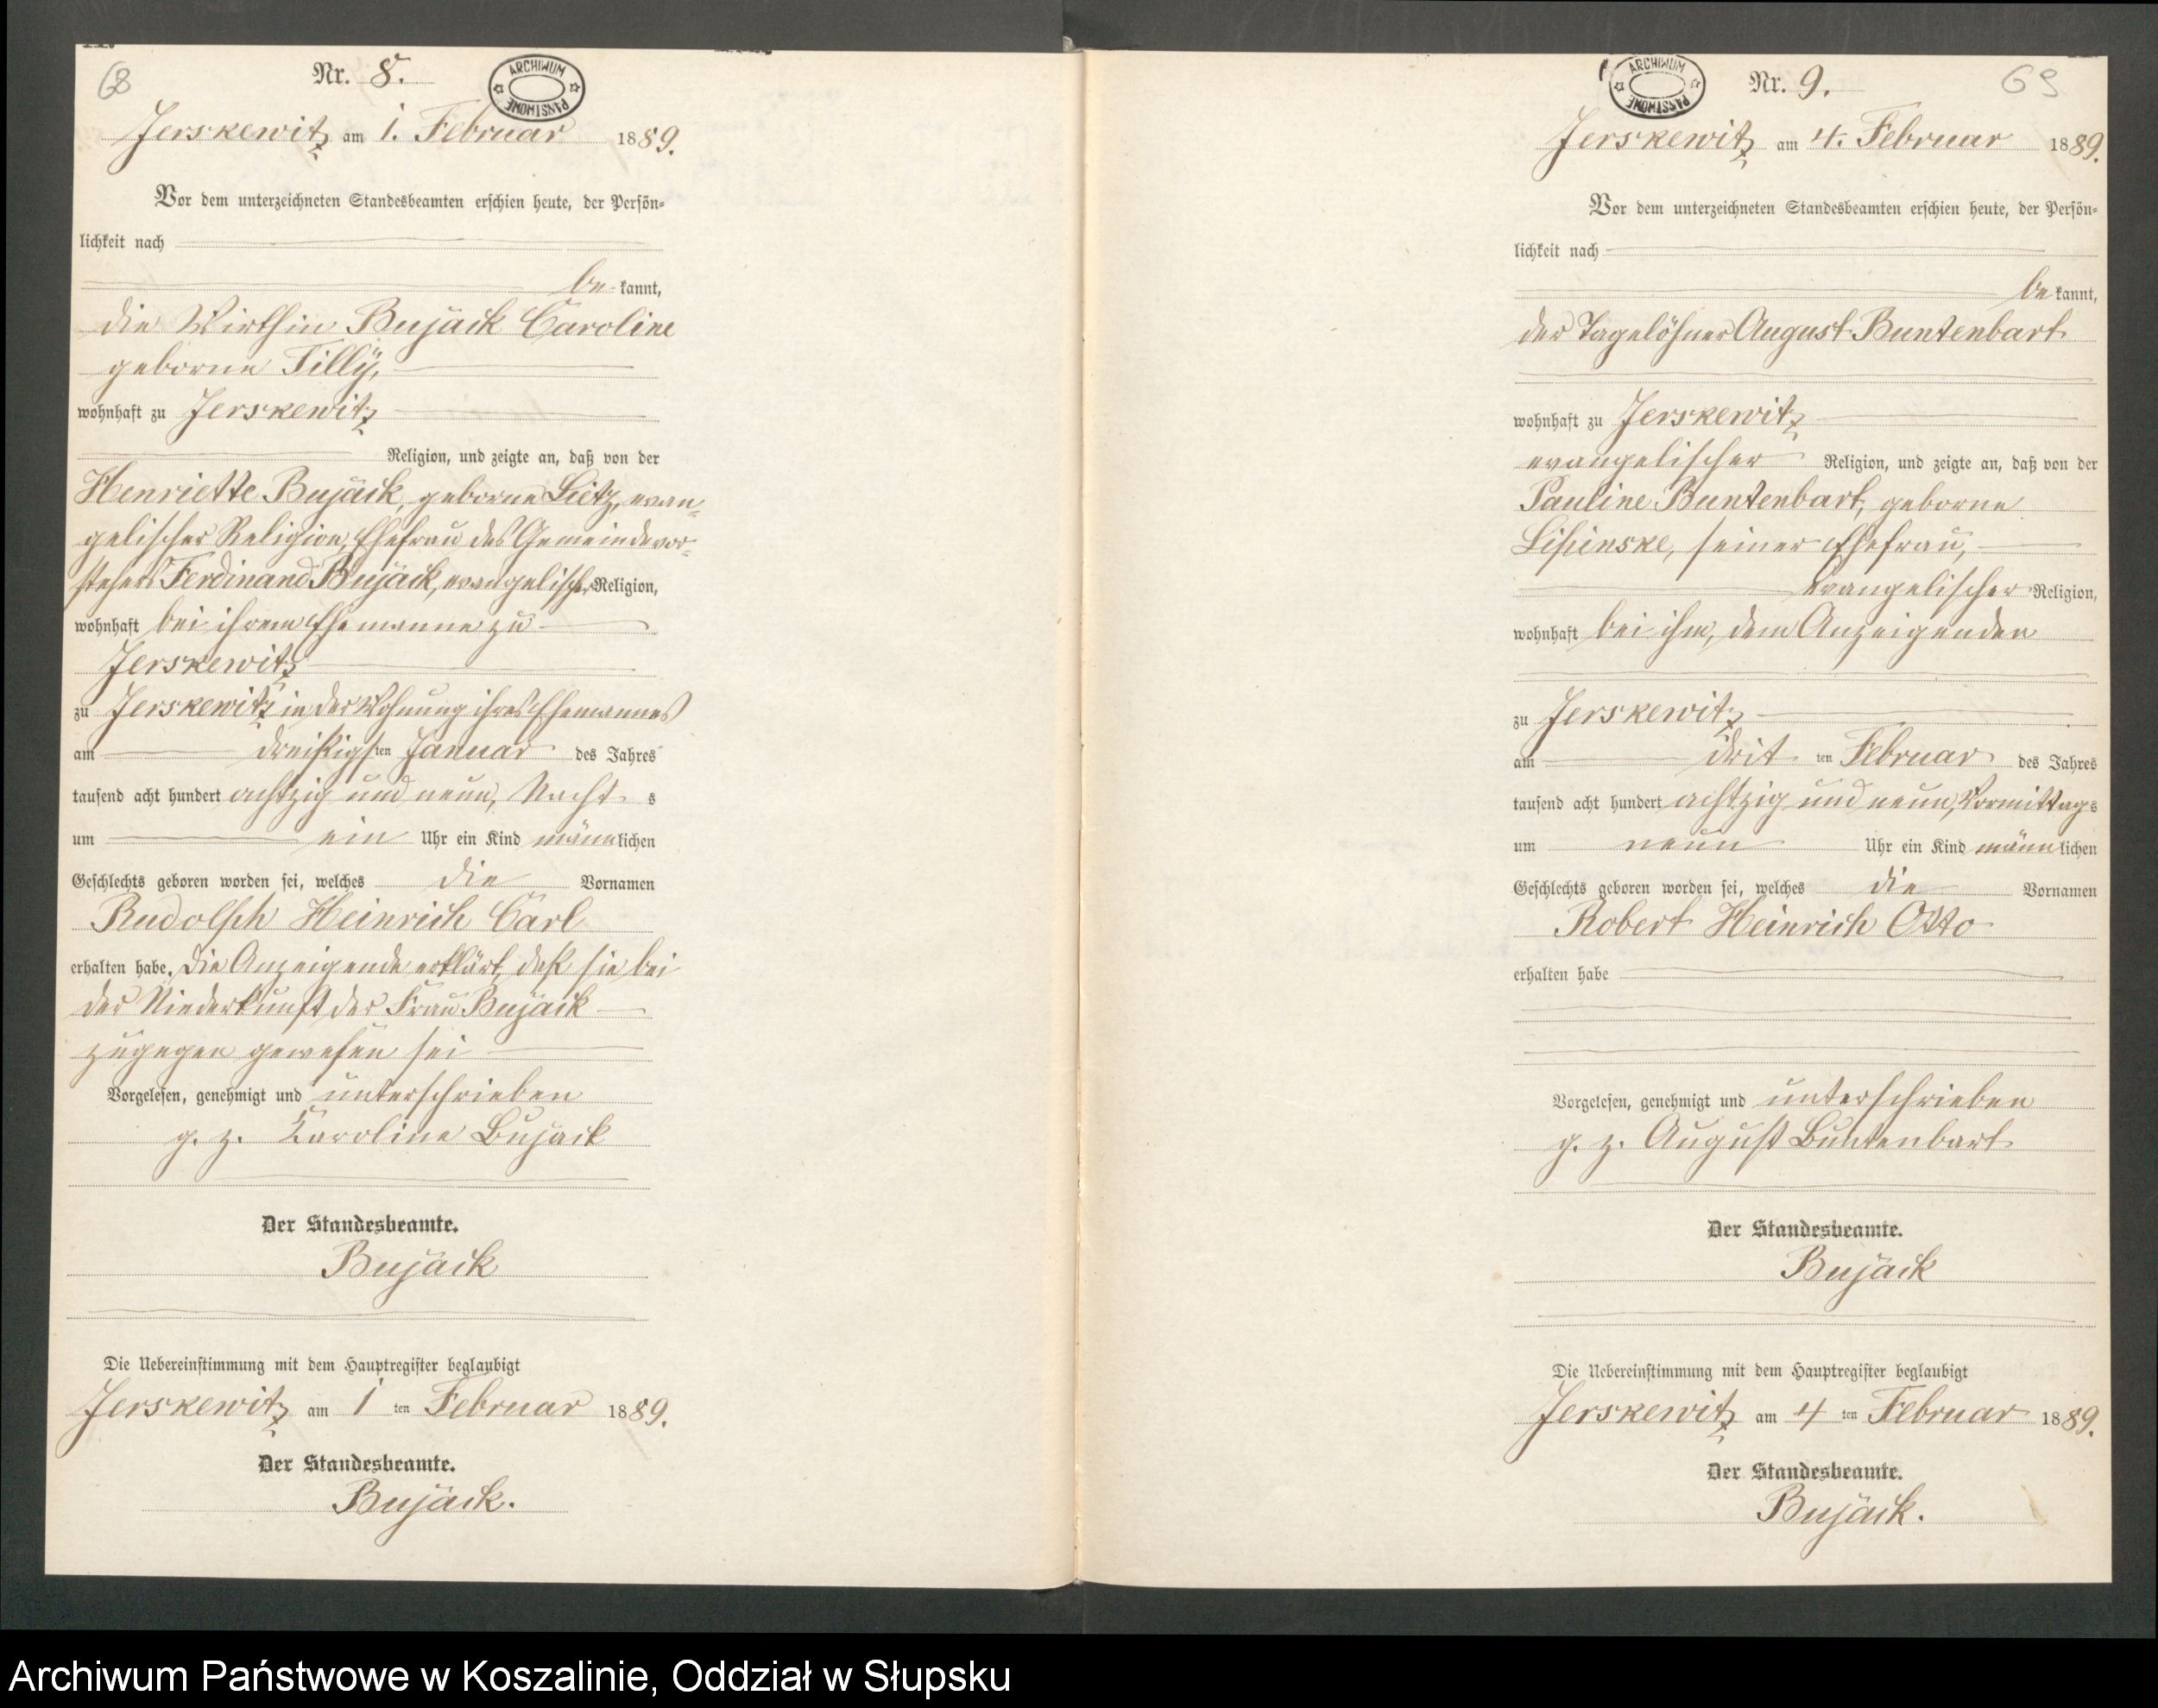 68
Nr. 8.
ARCHIWUM PAŃSTWOWE
Jerskewitz am 1. Februar 1889.
Vor dem unterzeichneten Standesbeamten erschien heute, der Persön-
lichkeit nach
be kannt,
die Wirthin Bujack Caroline
geborne Tilly,
wohnhaft zu Jerskewitz
Religion, und zeigte an, daß von der
Henriette Bujack, geborne Lietz, evan-
gelischer Religion, Ehefrau des Gemeindevor-
stehers Ferdinand Bujack, evangelischer Religion,
wohnhaft bei ihrem Ehemanne zu
Jerskewitz
zu Jerskewitz in der Wohnung ihres Ehemannes
am dreißigsten Januar des Jahres
tausend acht hundert achtzig und neun, Nacht s
um ein Uhr ein Kind männlichen
Geschlechts geboren worden sei, welches die Vornamen
Rudolph Heinrich Carl
erhalten habe. Die Anzeigende erklärt, daß sie bei
der Niederkunft der Frau Bujack
zugegen gewesen sei
Vorgelesen, genehmigt und unterschrieben
g. z. Karoline Bujack
Der Standesbeamte.
Bujack
Die Uebereinstimmung mit dem Hauptregister beglaubigt
Jerskewitz am 1 ten Februar 1889.
Der Standesbeamte.
Bujack.
ARCHIWUM PAŃSTWOWE
Nr. 9.
69
Jerskewitz am 4. Februar 1889.
Vor dem unterzeichneten Standesbeamten erschien heute, der Persön-
lichkeit nach
be kannt,
der Tagelöhner August Buntenbart
wohnhaft zu Jerskewitz
evangelischer Religion, und zeigte an, daß von der
Pauline Buntenbart, geborne
Lipinske, seiner Ehefrau,
evangelischer Religion,
wohnhaft bei ihm, dem Anzeigenden
zu Jerskewitz
am drit ten Februar des Jahres
tausend acht hundert achtzig und neun, Vormittag s
um neun Uhr ein Kind männlichen
Geschlechts geboren worden sei, welches die Vornamen
Robert Heinrich Otto
erhalten habe
Vorgelesen, genehmigt und unterschrieben
g. z. August Buntenbart
Der Standesbeamte.
Bujack
Die Uebereinstimmung mit dem Hauptregister beglaubigt
Jerskewitz am 4 ten Februar 1889.
Der Standesbeamte.
Bujack.
Archiwum Państwowe w Koszalinie, Oddział w Słupsku